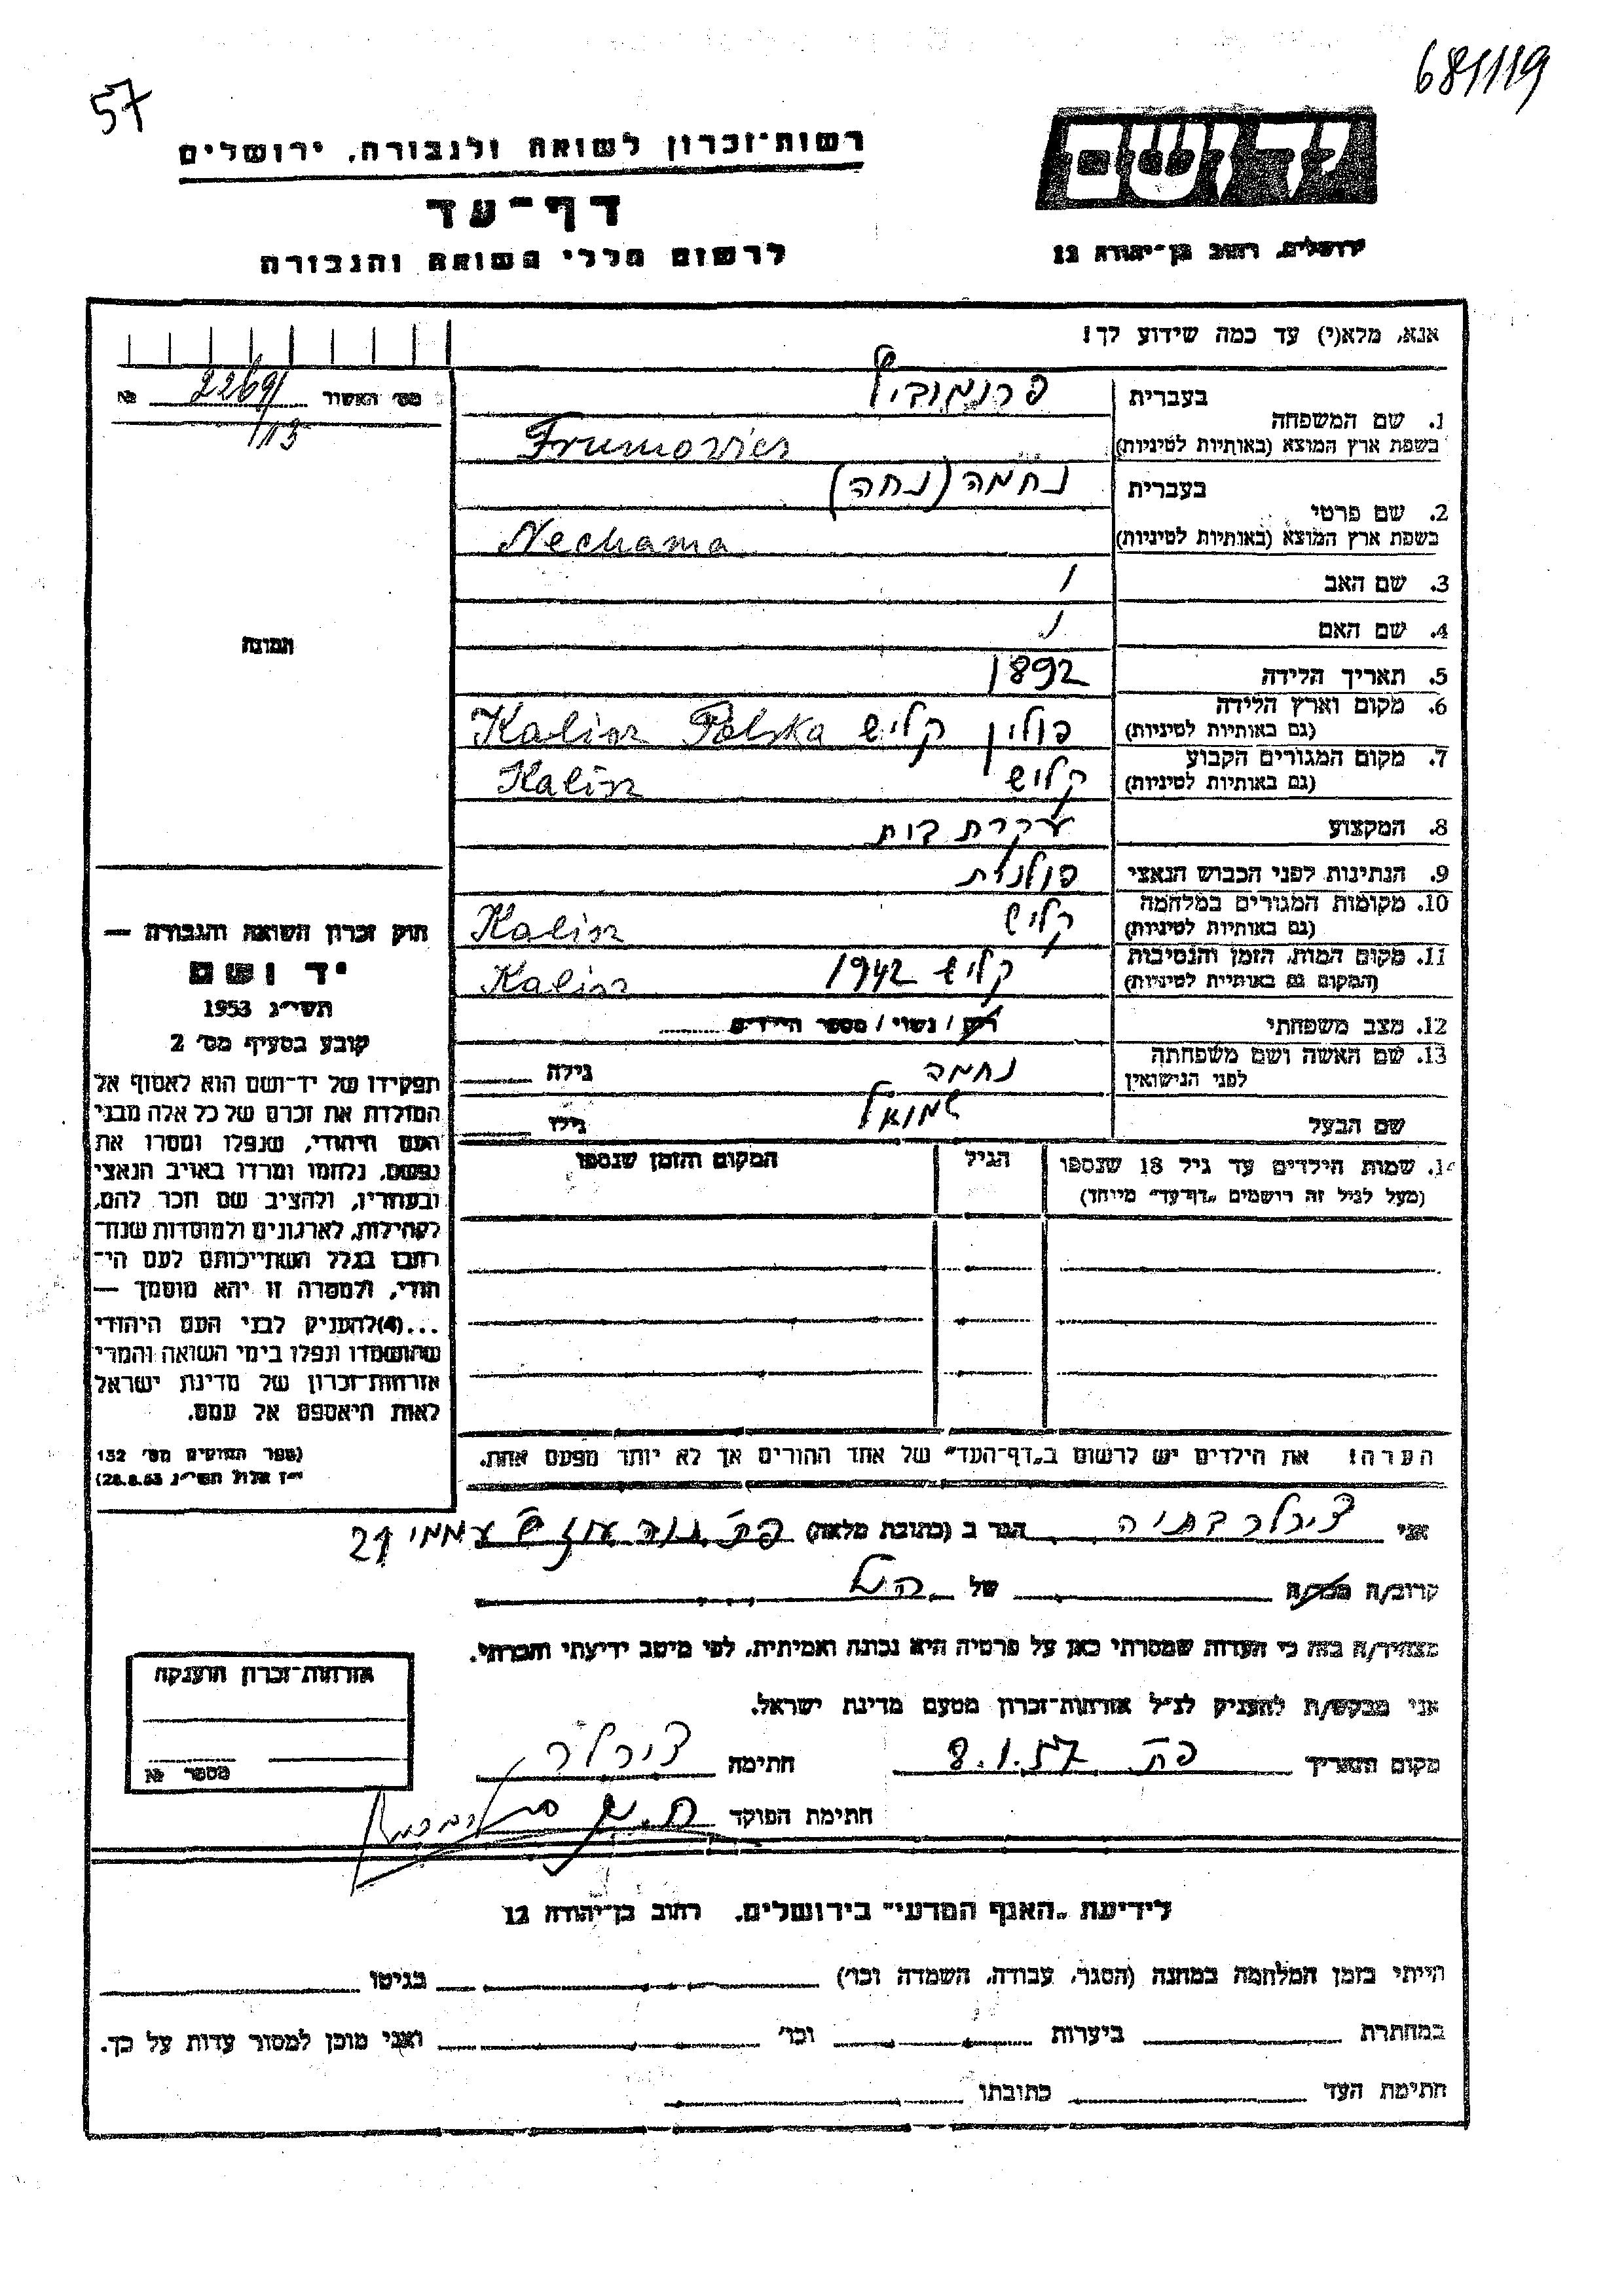 681119
57
יד ושם
רשות־זכרון לשואה ולגבורה, ירושלים
דף־עד
ירושלים, רחוב בן־יהודה 12
לרשום חללי השואה והגבורה
אנא, מלא(י) עד כמה שידוע לך!
מס׳ האשור 2269/ №
113
1. שם המשפחה
בעברית
בשפת ארץ המוצא (באותיות לטיניות) Frumovies
2. שם פרטי
בעברית נחמה (נחה)
בשפת ארץ המוצא (באותיות לטיניות) Nechama
3. שם האב /
4. שם האם /
תמונה
5. תאריך הלידה 1892
6. מקום וארץ הלידה
(גם באותיות לטיניות) פולין קליש Kalisz Polska
7. מקום המגורים הקבוע
(גם באותיות לטיניות) קליש Kalisz
8. המקצוע עקרת בית
9. הנתינות לפני הכבוש הנאצי פולנית
10. מקומות המגורים במלחמה
(גם באותיות לטיניות) קליש Kalisz
11. מקום המות, הזמן והנסיבות
(המקום גם באותיות לטיניות) קליש 1942 Kalisz
12. מצב משפחתי רוק / נשוי / מספר הילדים
13. שם האשה ושם משפחתה
לפני הנישואין נחמה גילה
שם הבעל שמואל גילו
14. שמות הילדים עד גיל 18 שנספו הגיל המקום והזמן שנספו
(מעל לגיל זה רושמים „דף־עד״ מיוחד)
הערה! את הילדים יש לרשום ב„דף־העד״ של אחד ההורים אך לא יותר מפעם אחת.
חוק זכרון השואה והגבורה —
יד ושם
תשי״ג 1953
קובע בסעיף מס׳ 2
תפקידו של יד־ושם הוא לאסוף אל
המולדת את זכרם של כל אלה מבני
העם היהודי, שנפלו ומסרו את
נפשם, נלחמו ומרדו באויב הנאצי
ובעוזריו, ולהציב שם וזכר להם,
לקהילות, לארגונים ולמוסדות שנח־
רבו בגלל השתייכותם לעם הי־
הודי, ולמטרה זו יהא מוסמך —
...(4) להעניק לבני העם היהודי
שהושמדו ונפלו בימי השואה והמרי
אזרחות־זכרון של מדינת ישראל
לאות היאספם אל עמם.
(ספר החוקים מס׳ 132
י״ז אלול תשי״ג 28.8.53)
אני צירלר בתיה הגר ב (כתובת מלאה) עממי 21
קרוב/ה מכר/ה של הנ״ל
מצהיר/ה בזה כי העדות שמסרתי כאן על פרטיה היא נכונה ואמיתית, לפי מיטב ידיעתי והכרתי.
אני מבקש/ת להעניק לנ״ל אזרחות־זכרון מטעם מדינת ישראל.
מקום ותאריך פ״ת 8.1.57 חתימה צירלר
חתימת הפוקד
אזרחות־זכרון הוענקה
מספר №
לידיעת „האגף המדעי״ בירושלים, רחוב בן־יהודה 12
הייתי בזמן המלחמה במחנה (הסגר, עבודה, השמדה וכו׳) בגיטו
במחתרת ביערות וכו׳ ואני מוכן למסור עדות על כך.
חתימת העד כתובתו